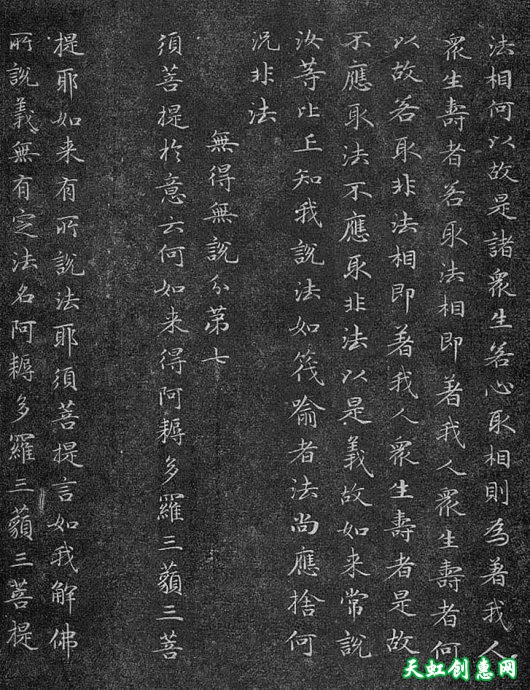 法相何以故是諸眾生若心取相則為著我人
眾生壽者若取法相即著我人眾生壽者何
以故若取非法相即著我人眾生壽者是故
不應取法不應取非法以是義故如来常說
汝等比丘知我說法如筏喻者法尚應捨何
況非法
無得無說分第七
須菩提於意云何如来得阿耨多羅三藐三菩
提耶如来有所說法耶須菩提言如我解佛
所說義無有定法名阿耨多羅三藐三菩提
天虹创惠网